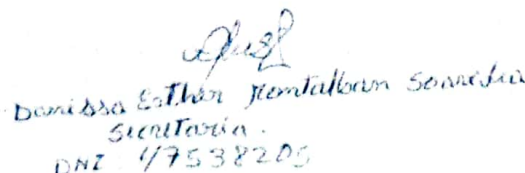 Danissa Esther Montalban
Secretaria.
DNI 47538205